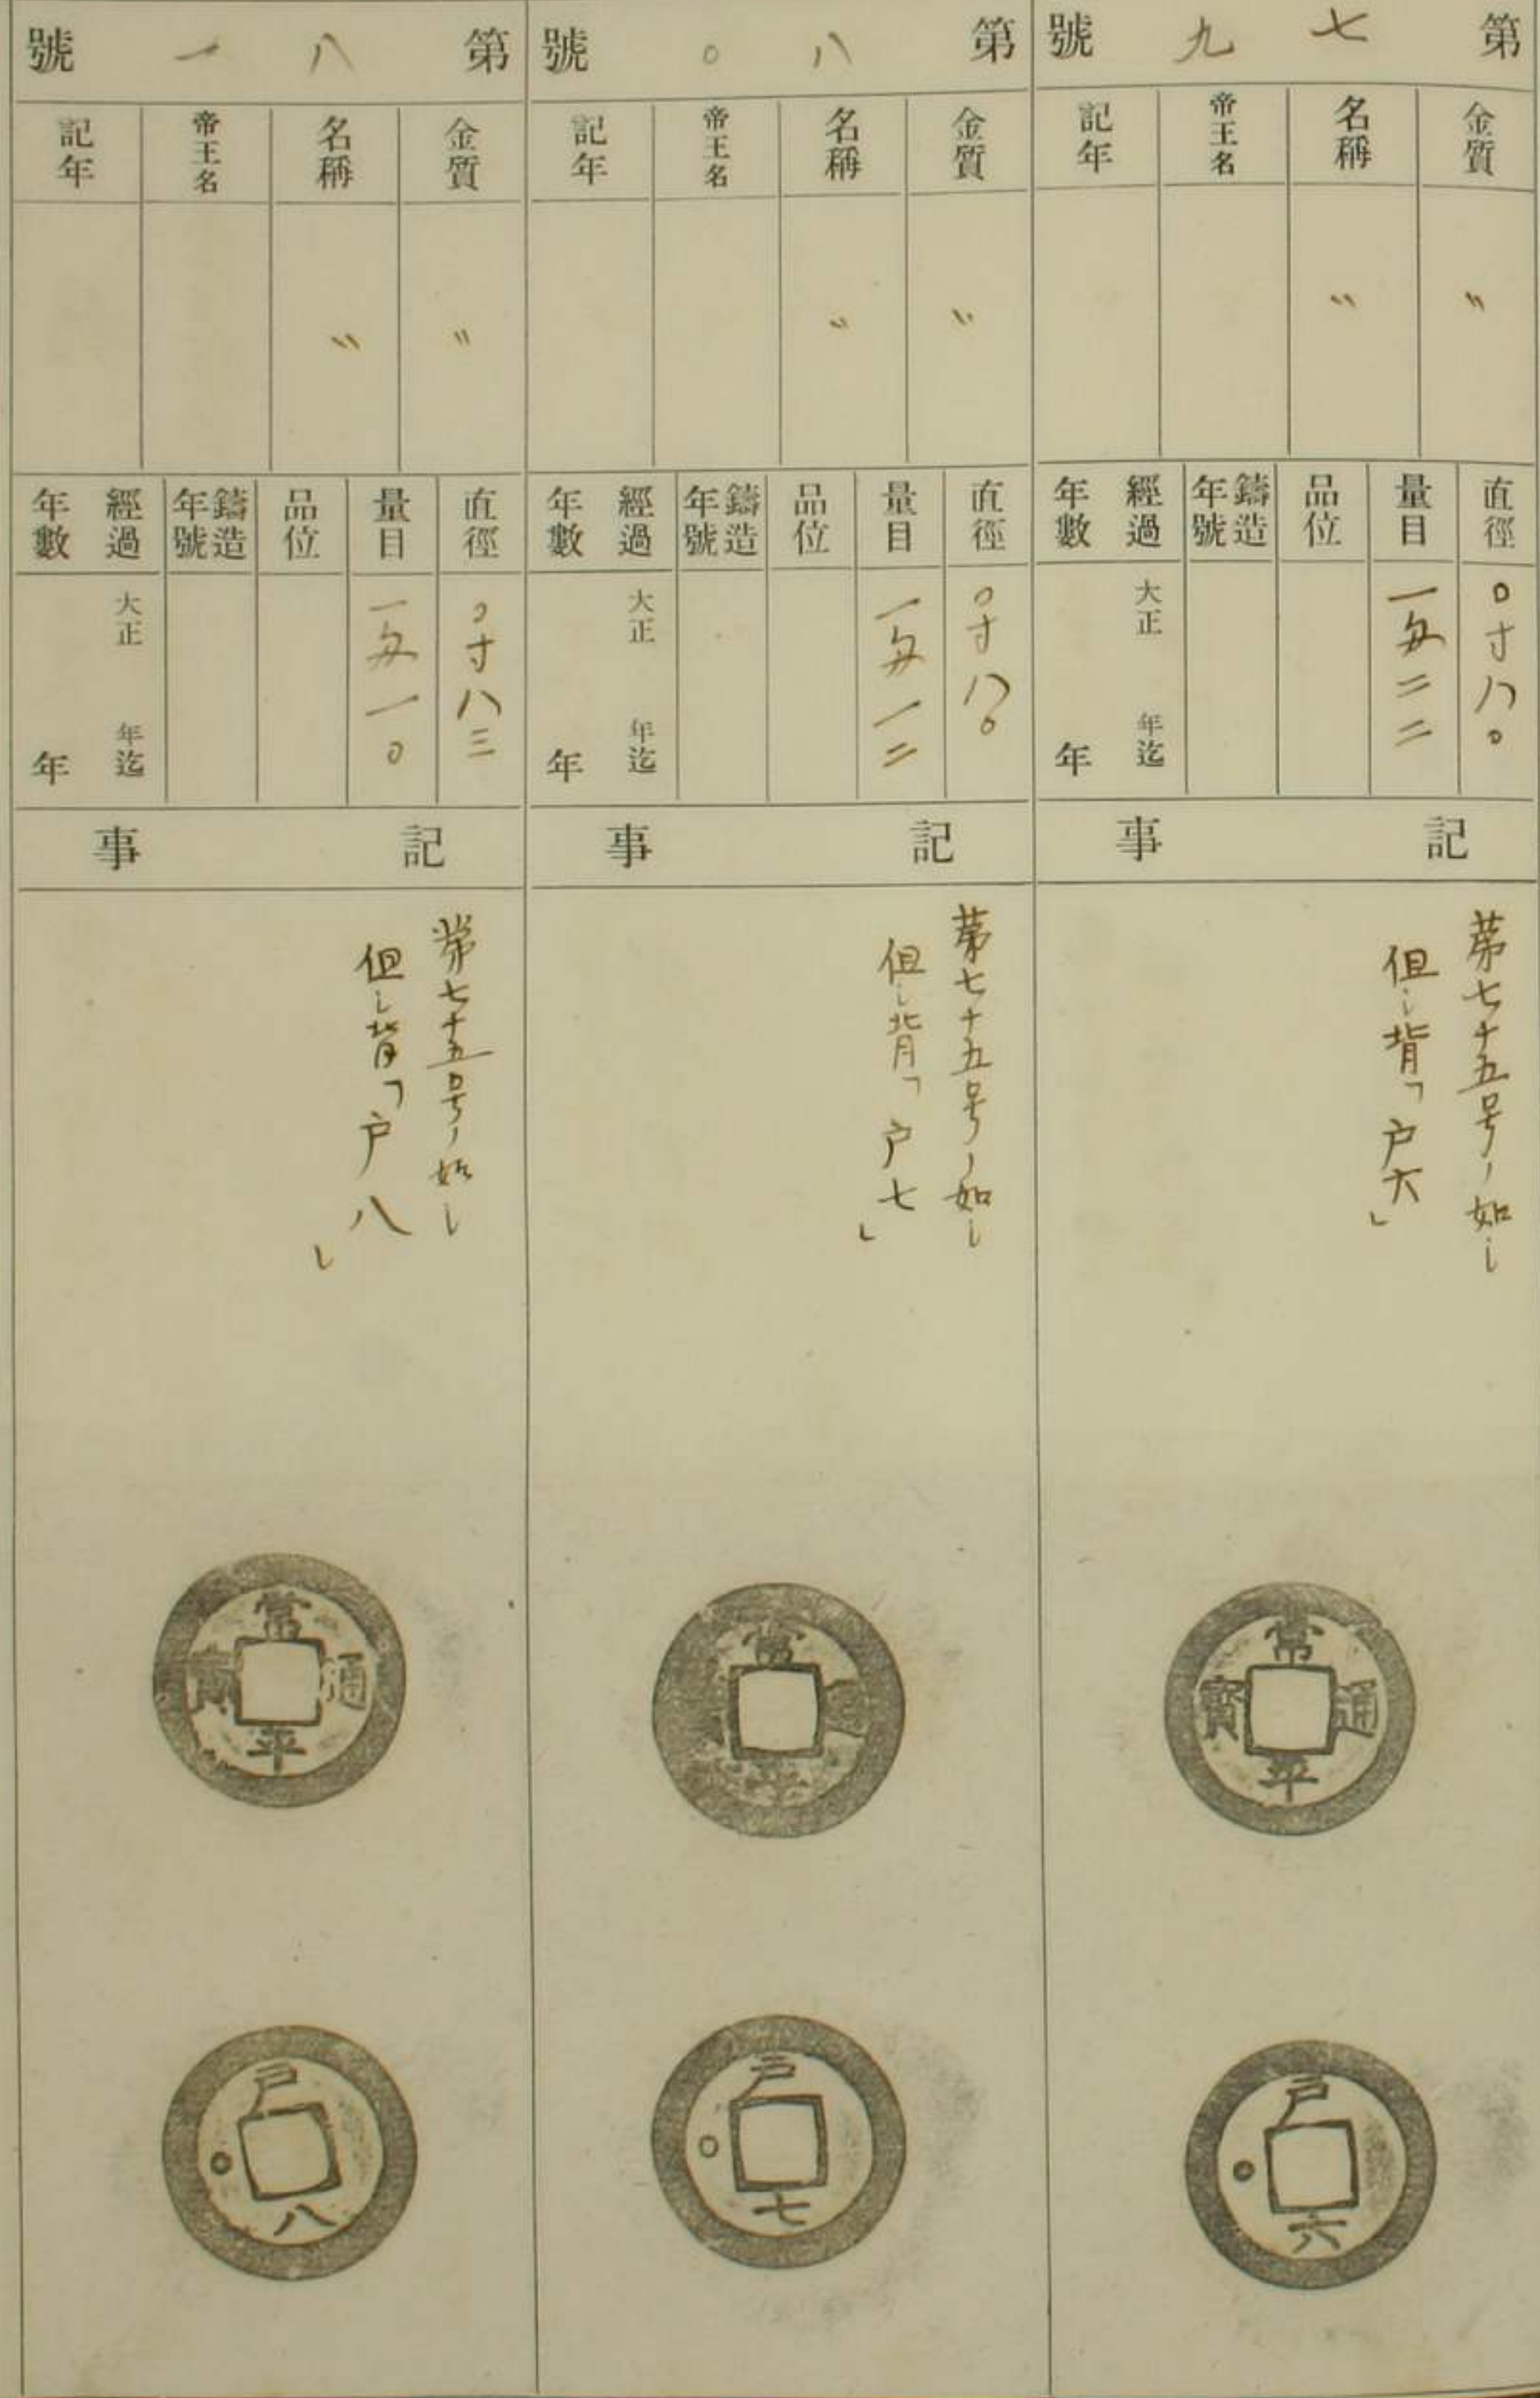 第七九號
金質
名稱
帝王名
記年
〃
〃
直徑
量目
品位
鑄造年號
經過年數
〇寸八〇
一匁二二
大正 年迄
年
記事
第七十五号ノ如シ
但シ背「戸六」
常平通寶
戸六
第八〇號
金質
名稱
帝王名
記年
〃
〃
直徑
量目
品位
鑄造年號
經過年數
〇寸八〇
一匁一二
大正 年迄
年
記事
第七十五号ノ如シ
但シ背「戸七」
常平
戸七
第八一號
金質
名稱
帝王名
記年
〃
〃
直徑
量目
品位
鑄造年號
經過年數
〇寸八三
一匁一〇
大正 年迄
年
記事
第七十五号ノ如シ
但シ背「戸八」
常平通寶
戸八